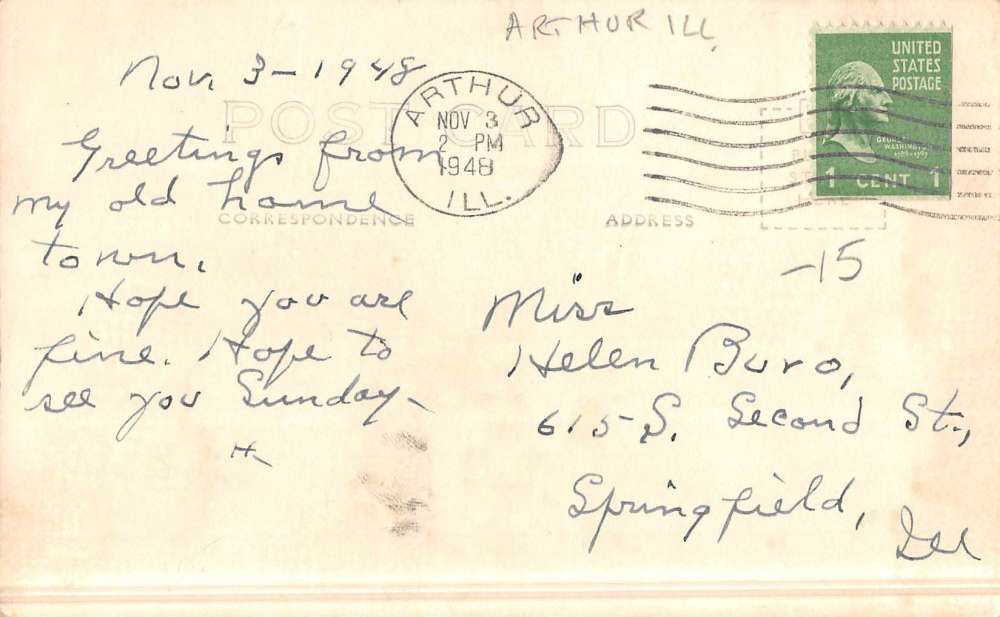 ARTHUR ILL.
Nov. 3-1948
POST CARD
ARTHUR
NOV 3
2 PM
1948
ILL.
UNITED
STATES
POSTAGE
GEORGE
WASHINGTON
1 CENT 1
Greetings from
my old home
town.
Hope you are
fine. Hope to
see you Sunday-
H-
CORRESPONDENCE
ADDRESS
-15
Miss
Helen Buro,
615 S. Second St.,
Springfield,
Ill